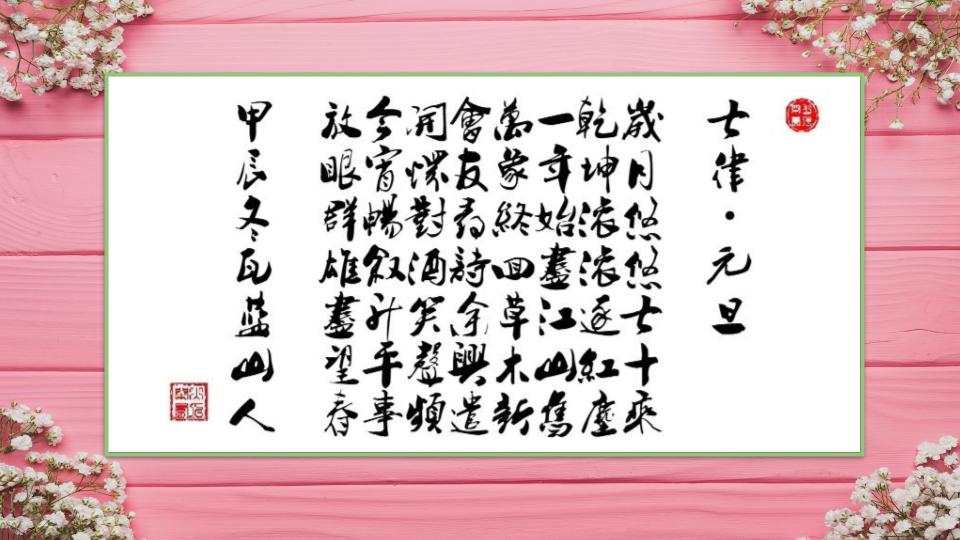 七律·元旦
歲月悠悠七十乘
乾坤滾滾逐紅塵
一年始盡江山舊
萬象終回草木新
會友尋詩余興遣
開懷對酒笑聲頻
今宵暢敘升平事
放眼群雄盡望春
甲辰冬瓦蓝山人